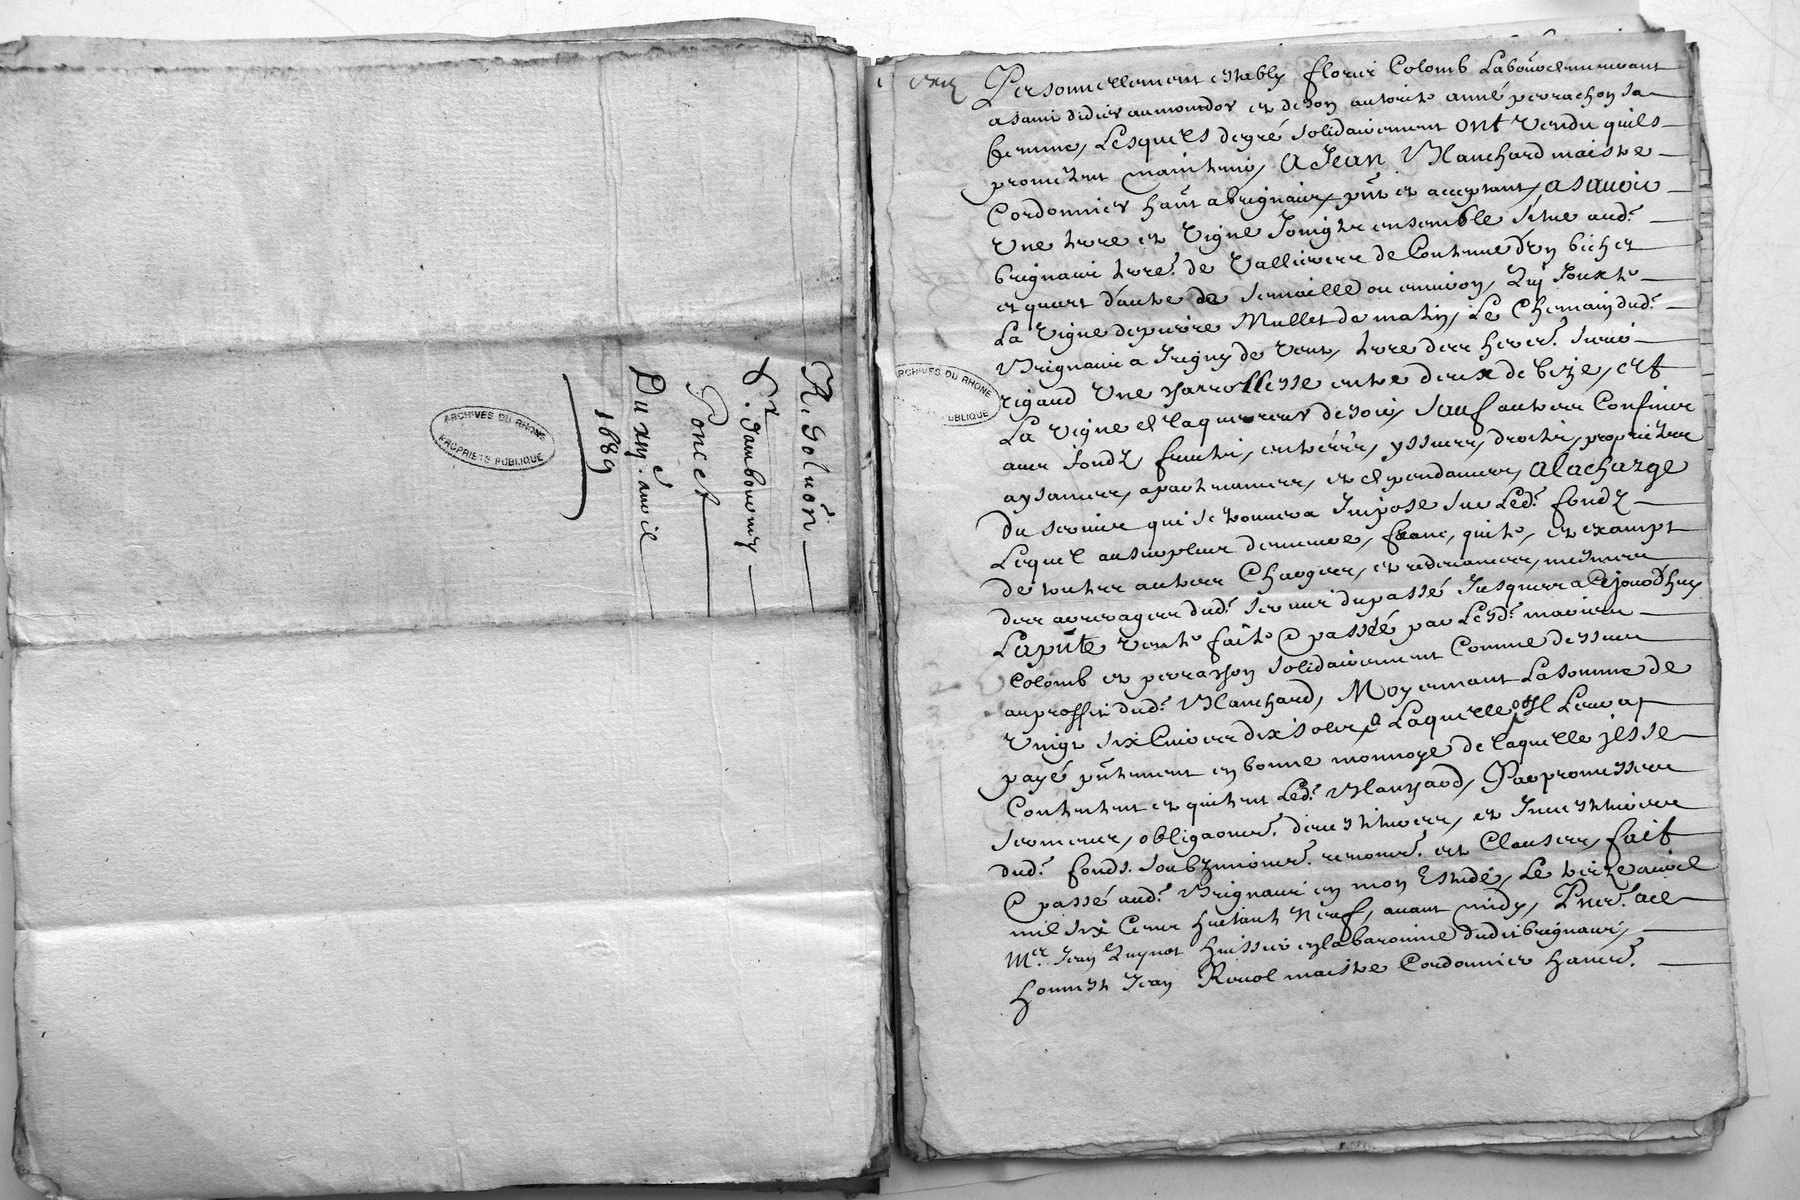 R. Solution
Sr. Jambournez
Poncet
Du xiij. avril
1689
ARCHIVES DU RHONE
PROPRIÉTÉ PUBLIQUE
Personnellement estably florix Colomb Laboureur
a saint didier au montdor et de son autorité anné perrachon sa
femme, Lesquels de gré solidairement ont vendu quils
prometent maintenir, A Jean Blanchard maistre
Cordonnier hant a brignaix pnt et acceptant, asavoir
Une terre et Vigne Joingte ensemble situé aud.
brignaix terre. de de Contenue d'un bichet
et quart d'autre de semaille ou environ, Qui Jouxte
La Vigne de pierre Mullet de matin, Le Chemain dud.
Brignaix a Irigny de vent, terre des herer.
rigaud Une entre deux de bize, et
La Vigne de soir, sauf autres Confins
avec fondz fruits, entrées, yssues, droits, proprietes
aysances, apartenances, et dependances, A la charge
du servis qui se trouvera Imposé sur Led. fondz
Lequel au surplus demeure, franc, quite, et exampt
de toutes autres Charges, et redevances, mesmes
des arrerages dud. servis du passé Jusques a Cejourdhuy
La pnte vente faite e passée par Lesd. mariés
Colomb et perrachon solidairement Comme dessus
au proffit dud. Blanchard, Moyennant La somme de
Vingt six Livres dix sols, Laquelle Leur a
payé pntement en bonne monnoye de laquelle
Contentent et quittent Led. Blanchard, Par promesses
sermens, obligaons.
dud. fonds. soubzmions. renons. et Clauses, fait
e passé aud. Brignaix en mon Estude, Le treize avril
mil six Cens huitante Neuf, avant midy, Pns. a ce
Mre. Jean huissier en la baronnie dudit brignaix,
honneste Jean maistre Cordonnier
ARCHIVES DU RHONE
PUBLIQUE